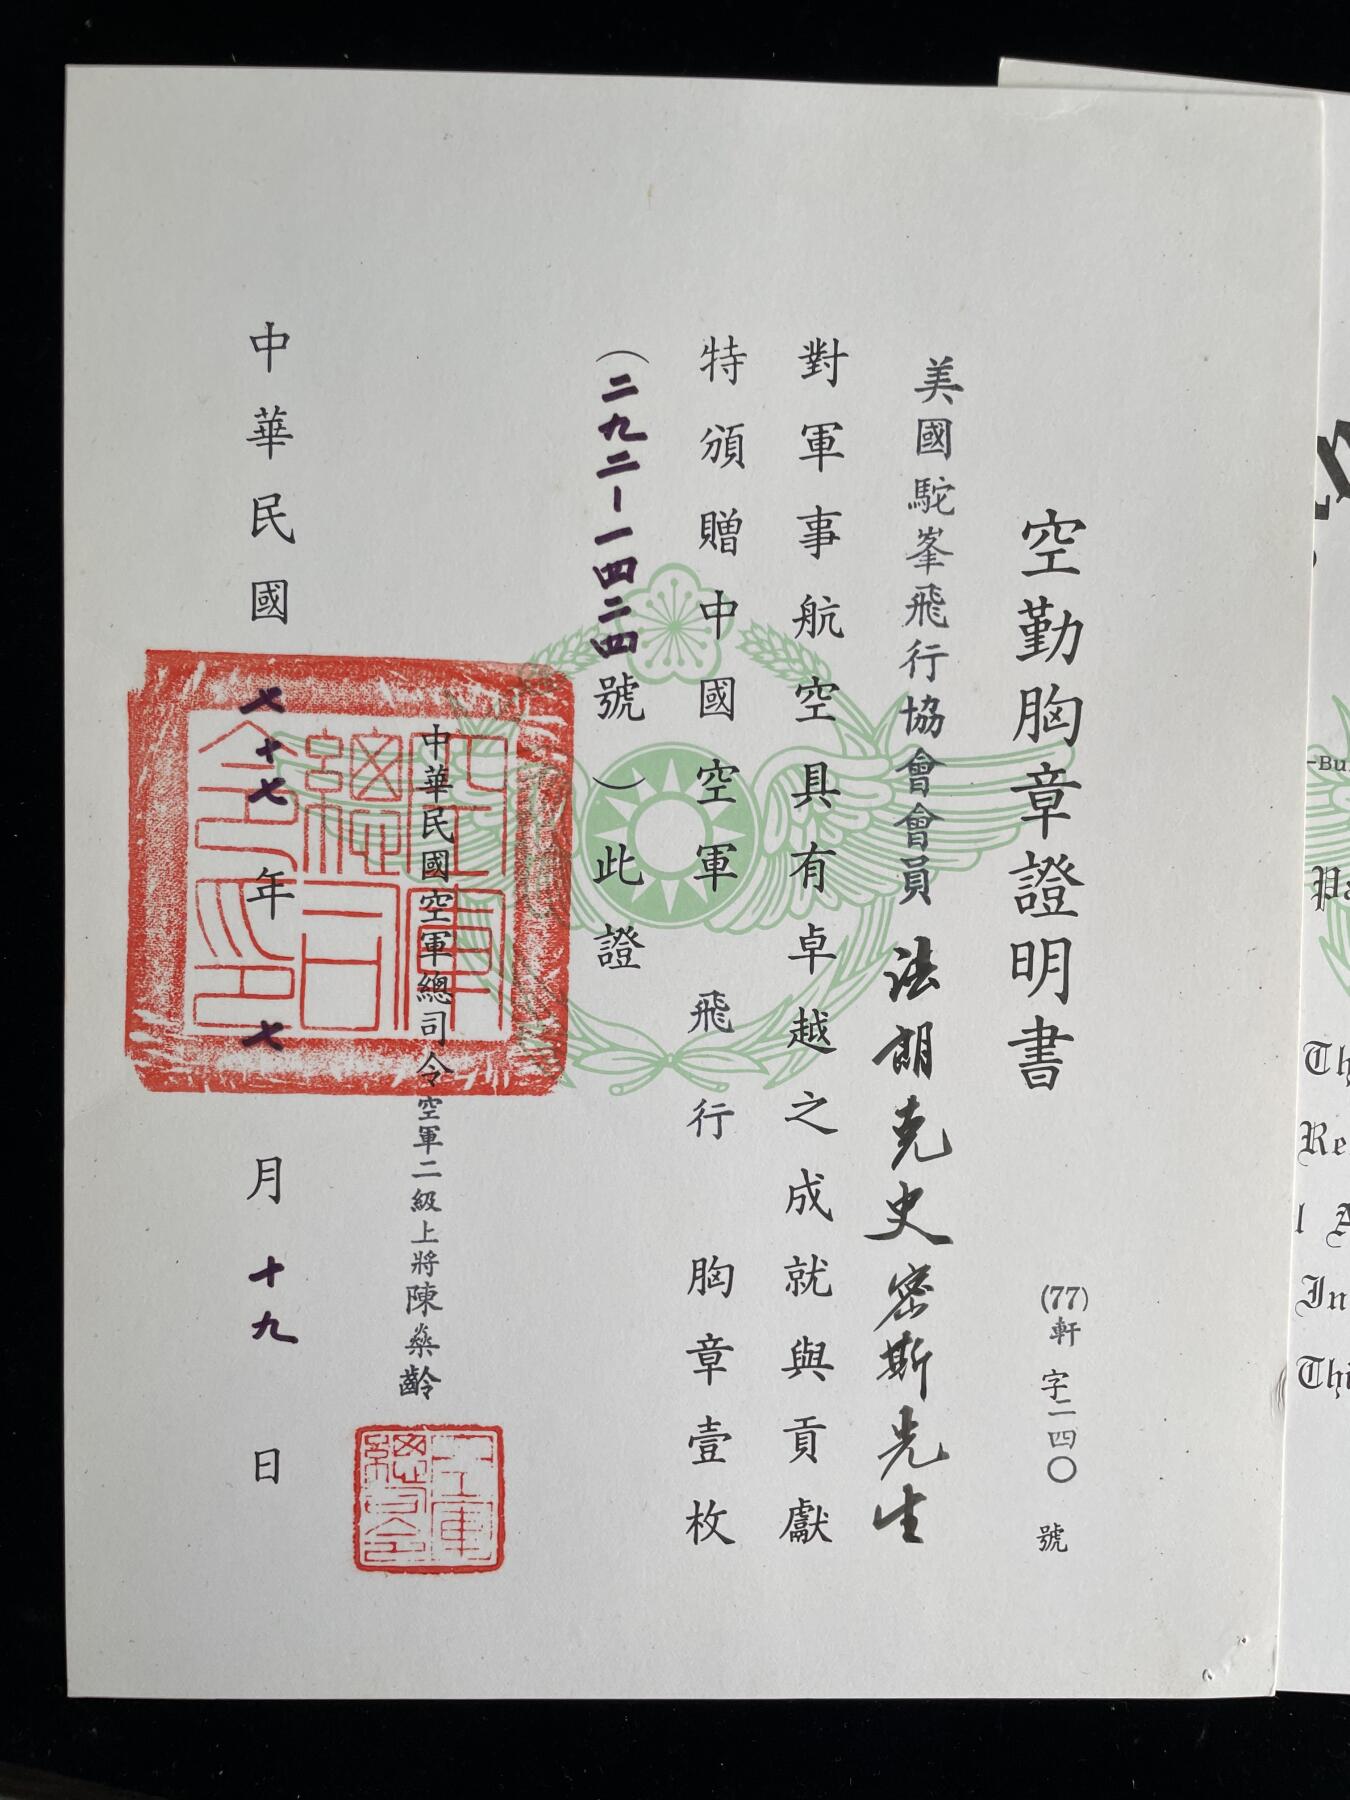 空勤胸章證明書
(77)軒字二四〇號
美國駝峯飛行協會會員法朗克史密斯先生
對軍事航空具有卓越之成就與貢獻
特頒贈中國空軍飛行胸章壹枚
（二九二－一四二四號）此證
中華民國空軍總司令空軍二級上將陳燊齡
空軍總司令
空軍總司令印
中華民國七十七年七月十九日
-Bu
Pa
Th
Re
l A
In
Thi